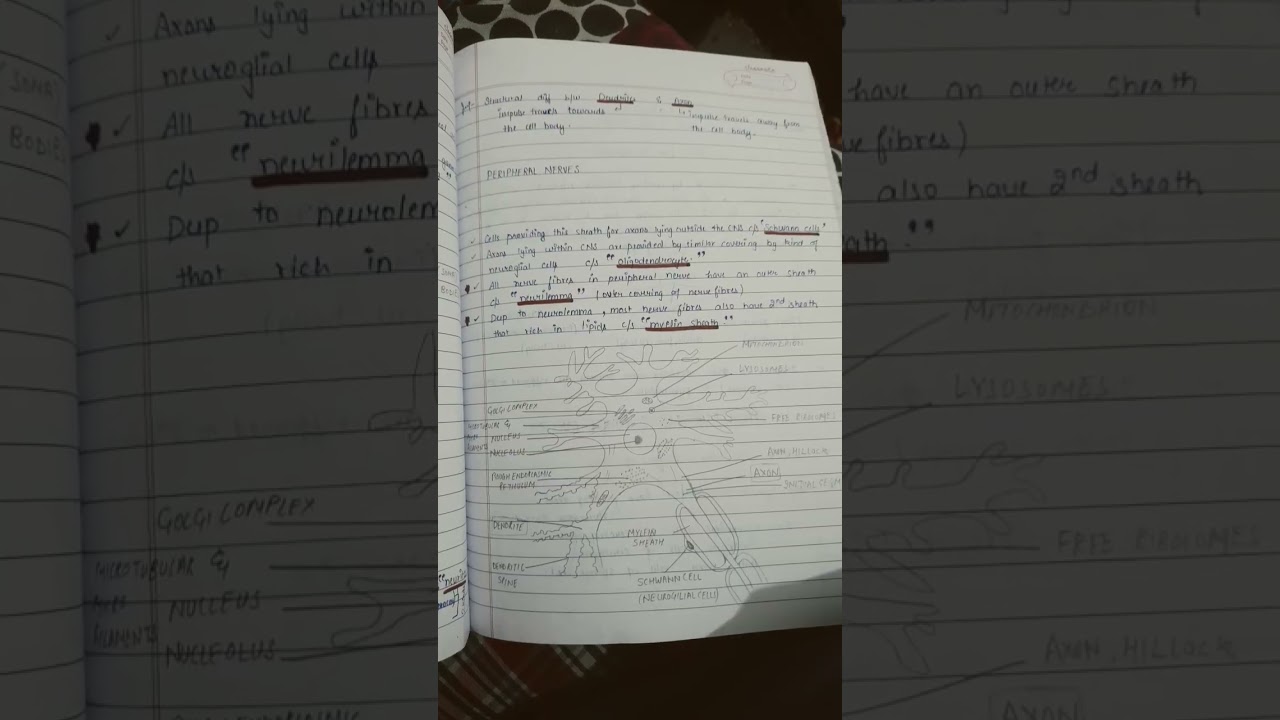 Structural diff b/w Dendrites & Axon
impulse travels towards
the cell body.
impulse travels away from
the cell body.
PERIPHERAL NERVES
Cells providing this sheath for axons lying outside the CNS c/s "Schwann cells"
Axons lying within CNS are provided by similar covering by kind of
neuroglial cells c/s "oligodendrocyte."
All nerve fibres in peripheral nerve have an outer sheath
c/s "neurilemma" (outer covering of nerve fibres)
Dup to neurolemma, most nerve fibres also have 2nd sheath
that rich in lipids c/s "myelin sheath."
MITOCHONDRION
LYSOSOMES.
GOLGI COMPLEX
FREE RIBOSOMES
MICROTUBULAR &
FILAMENTS
NUCLEUS
NUCLEOLUS
AXON HILLOCK
AXON
ROUGH ENDOPLASMIC
RETICULUM
DENDRITE
MYELIN
SHEATH
DENDRITIC
SPINE
SCHWANN CELL
(NEUROGILIAL CELL)